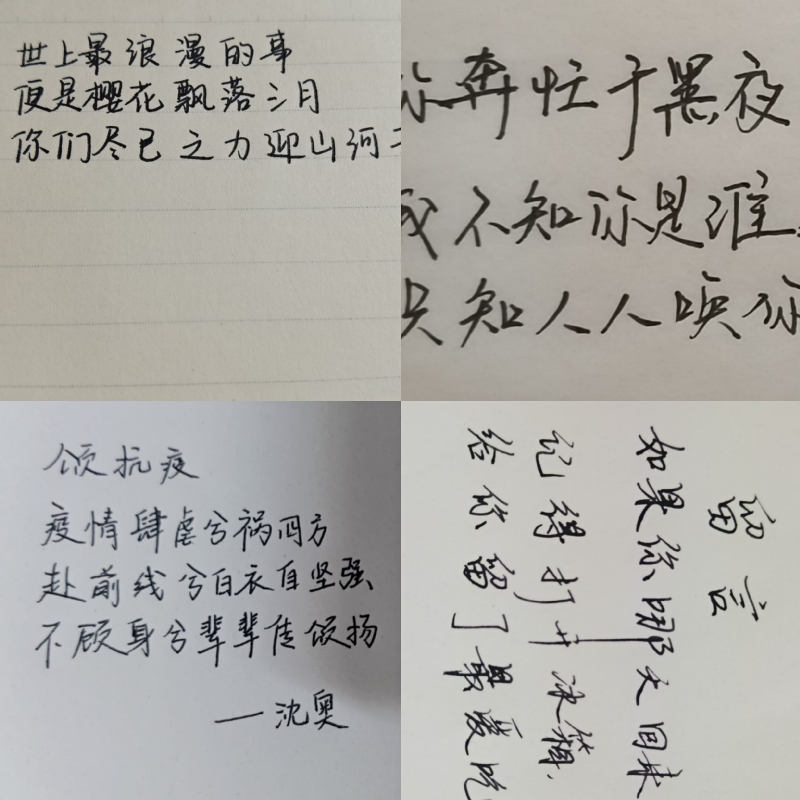 世上最浪漫的事
便是樱花飘落三月
你们尽己之力迎山河
你奔忙于黑夜
我不知你是谁
只知人人唤你
颂抗疫
疫情肆虐兮祸四方
赴前线兮白衣自坚强
不顾身兮辈辈传颂扬
——沈奥
留言
如果你哪天回来
记得打开冰箱，
给你留了最爱吃